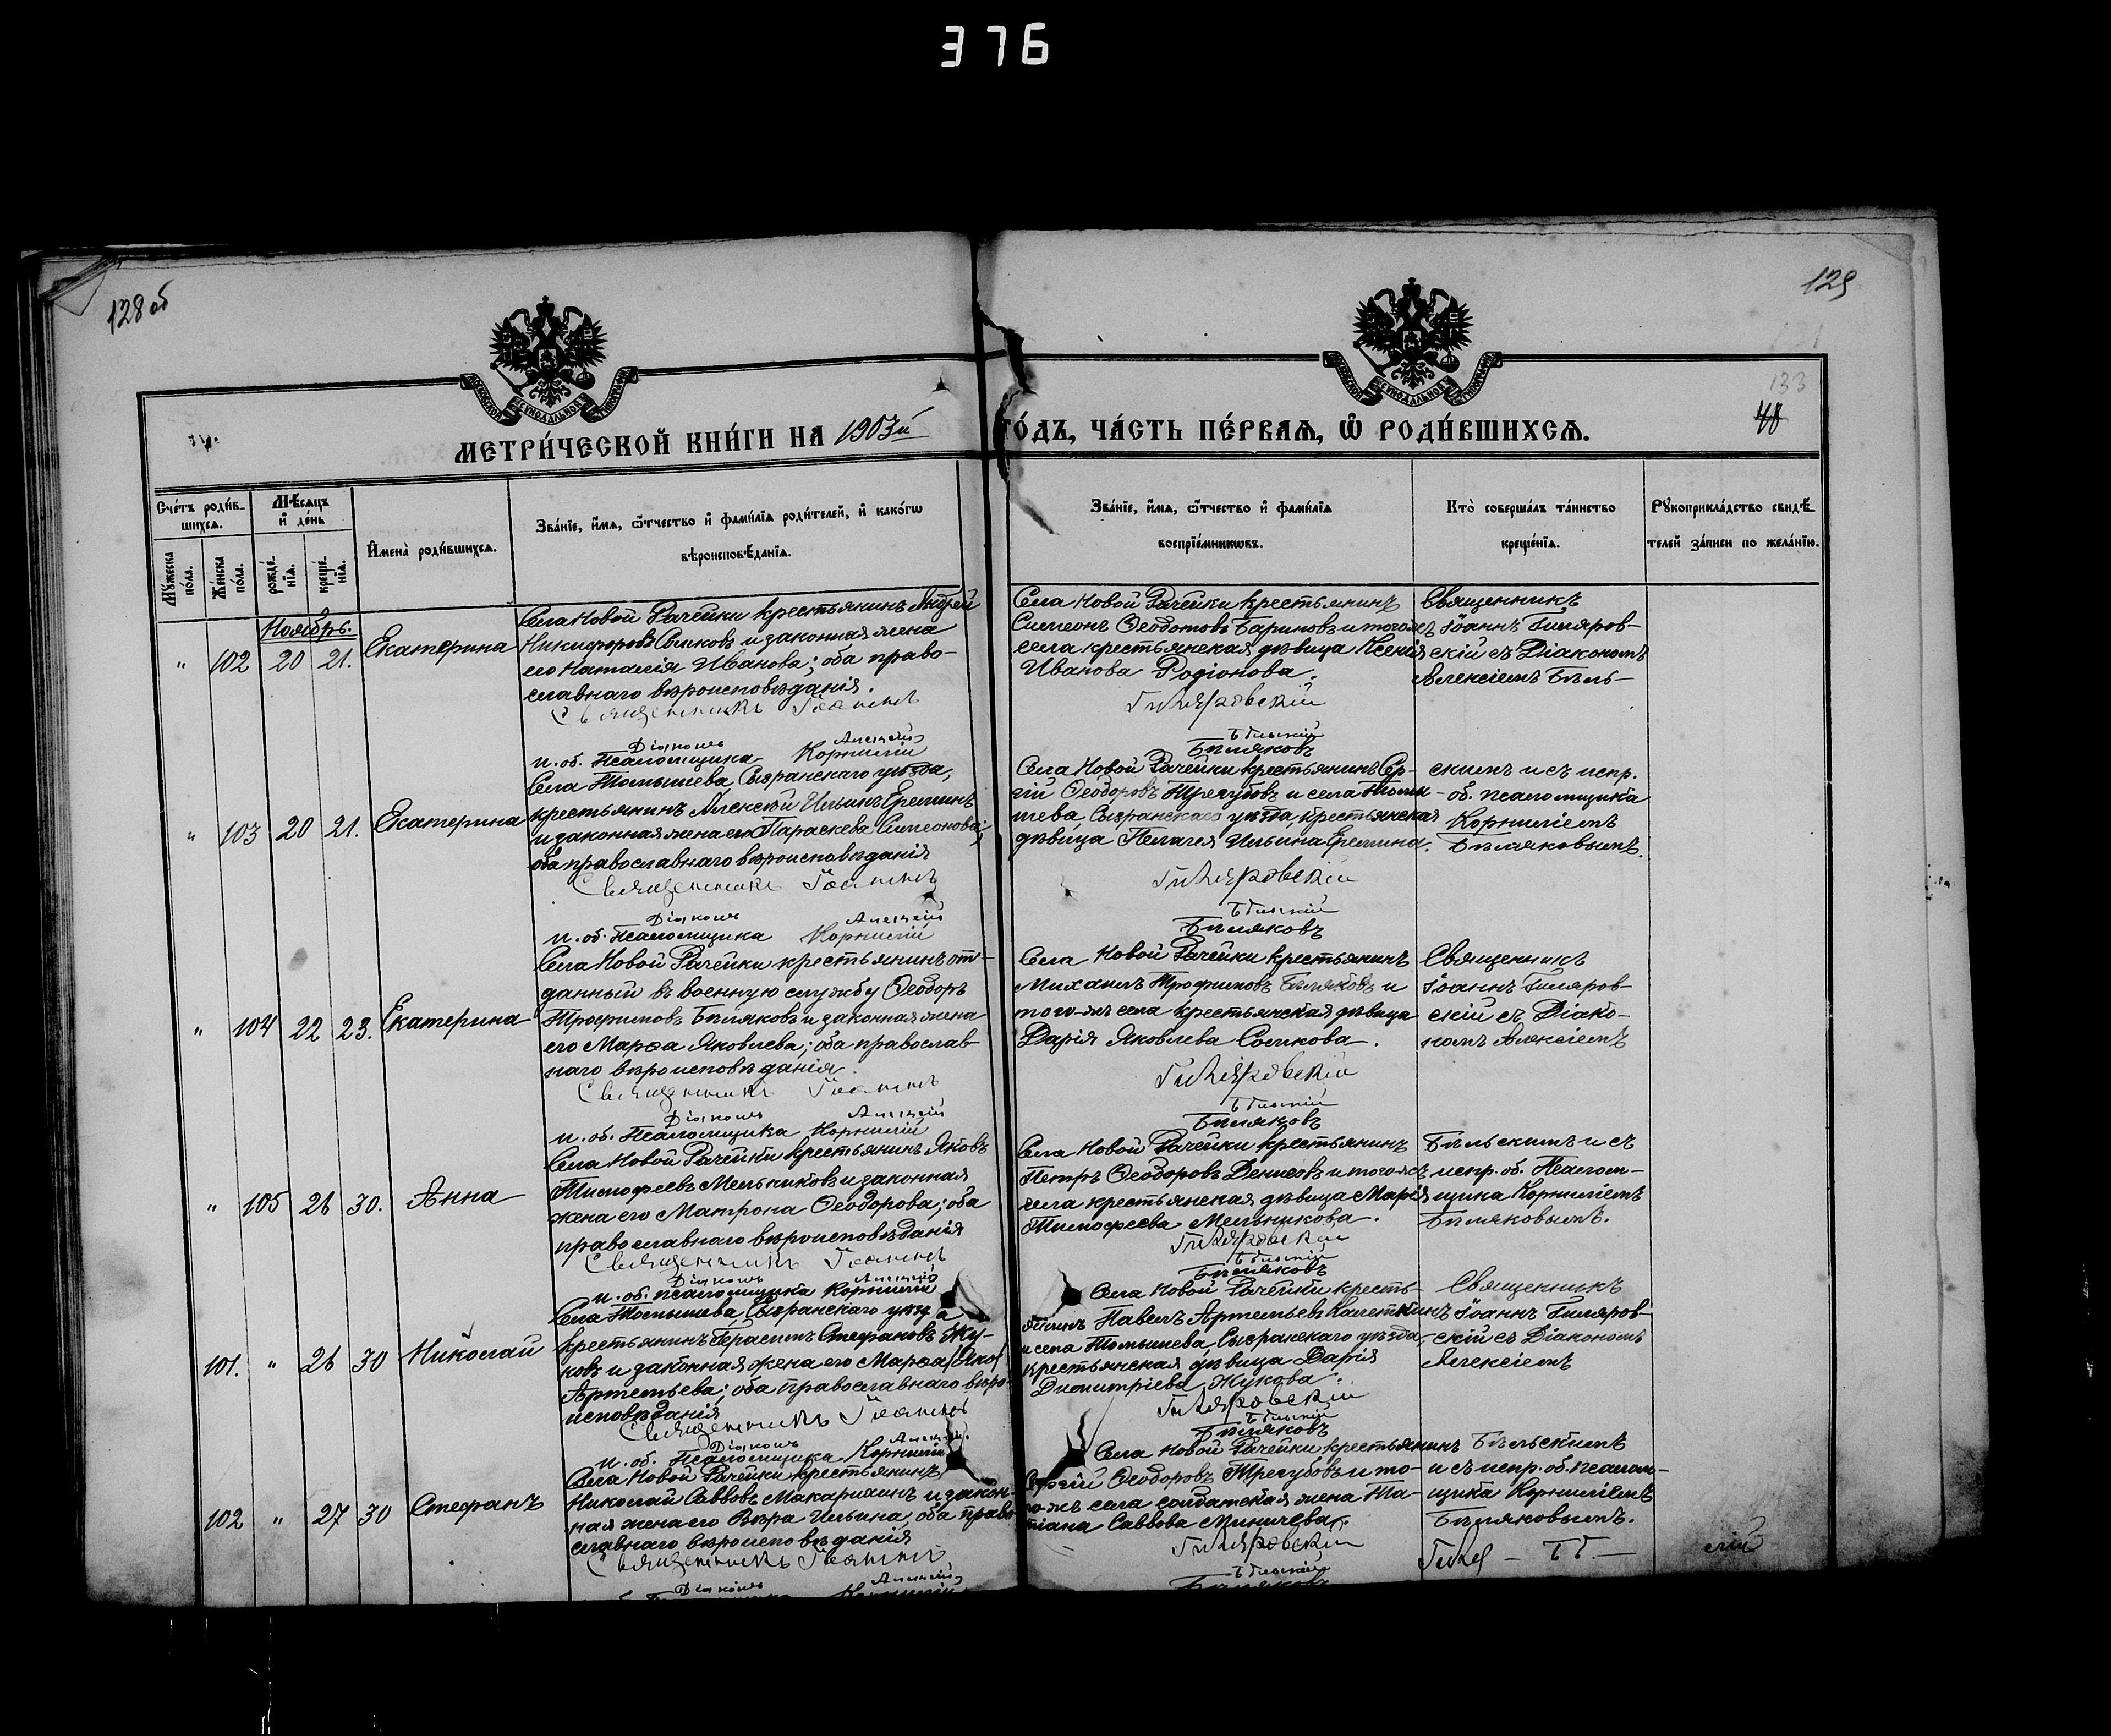 376
128 об
129
133
МЕТРИ́ЧЕСКОЙ КНИ́ГИ НА 1903й
ГО́ДЪ, ЧА́СТЬ ПЕ́РВАѦ, Ѽ РОДИ́ВШИХСѦ.
Сче́тъ роди́в-
шихсѧ.
Мѣ́сѧцъ
и де́нь
Мꙋ́жеска по́ла.
Же́нска по́ла.
рожде́-
нїѧ.
креще́-
нїѧ.
И҆мена̀ роди́вшихсѧ.
Зва́нїе, и҆́мѧ, ѻ҆́тчество и҆ фами́лїѧ роди́телей, и҆ како́гѡ
вѣроисповѣ́данїѧ.
Зва́нїе, и҆́мѧ, ѻ҆́тчество и҆ фами́лїѧ
воспрїе́мникѡвъ.
Кто̀ соверша́лъ та́инство
креще́нїѧ.
Рꙋкоприкла́дство свидѣ́-
телей за́писи по жела́нїю.
Ноябрь.
" 102 20 21. Екатерина
Села Новой Рачейки крестьянинъ Андрей
Никифоровъ Сомковъ и законная жена
его Наталія Иванова; оба право-
славнаго вѣроисповѣданія.
Священникъ Іоаннъ
Діаконъ Алексій
и. об. Псаломщика Корнилій
Села Новой Рачейки крестьянинъ
Симеонъ Ѳеодотовъ Бариновъ и того же
села крестьянская дѣвица Ксенія
Иванова Родіонова.
Гиляровскій
Бѣльскій
Бѣляковъ
Священникъ
Іоаннъ Гиляров-
скій съ Діакономъ
Алексіемъ Бѣль-
" 103 20 21. Екатерина
Села Томышева, Сызранскаго уѣзда,
крестьянинъ Алексѣй Ильинъ Ереминъ
и законная жена его Параскева Симеонова;
оба православнаго вѣроисповѣданія
Священникъ Іоаннъ
Діаконъ Алексій
и. об. Псаломщика Корнилій
Села Новой Рачейки крестьянинъ Сер-
гій Ѳеодоровъ Трегубовъ и села Томы-
шева, Сызранскаго уѣзда, крестьянская
дѣвица Пелагея Ильина Еремина.
Гиляровскій
Бѣльскій
Бѣляковъ
скимъ и съ испр.
об. псаломщика
Корниліемъ
Бѣляковымъ.
" 104 22 23. Екатерина
Села Новой Рачейки крестьянинъ от-
данный въ военную службу Ѳеодоръ
Трофимовъ Бѣляковъ и законная жена
его Марѳа Яковлева; оба православ-
наго вѣроисповѣданія.
Священникъ Іоаннъ
Діаконъ Алексій
и. об. Псаломщика Корнилій
Села Новой Рачейки крестьянинъ
Михаилъ Трофимовъ Бѣляковъ и
того-же села крестьянская дѣвица
Дарія Яковлева Сомкова.
Гиляровскій
Бѣльскій
Бѣляковъ
Священникъ
Іоаннъ Гиляров-
скій съ Діако-
номъ Алексіемъ
" 105 26 30. Анна
Села Новой Рачейки крестьянинъ Яковъ
Тимоѳеевъ Мельниковъ и законная
жена его Матрона Ѳеодорова; оба
православнаго вѣроисповѣданія
Священникъ Іоаннъ
Діаконъ Алексій
и. об. псаломщика Корнилій
Села Новой Рачейки крестьянинъ
Петръ Ѳеодоровъ Денисовъ и того же
села крестьянская дѣвица Марія
Тимоѳеева Мельникова.
Гиляровскій
Бѣльскій
Бѣляковъ
Бѣльскимъ и съ
испр. об. Псалом-
щика Корниліемъ
Бѣляковымъ.
101. " 26 30 Николай
Села Томышева, Сызранскаго уѣзда
крестьянинъ Герасимъ Стефановъ Жу-
ковъ и законная жена его Марѳа
Артемьева; оба православнаго вѣро-
исповѣданія
Священникъ Іоаннъ
Діаконъ Алексій
и. об. Псаломщика Корнилій
Села Новой Рачейки кресть-
янинъ Павелъ Артемьевъ
и села Томышева, Сызранскаго уѣзда,
крестьянская дѣвица Дарія
Димитріева Жукова.
Гиляровскій
Бѣльскій
Бѣляковъ
Священникъ
Іоаннъ Гиляров-
скій съ Діакономъ
Алексіемъ
102 " 27 30 Стефанъ
Села Новой Рачейки крестьянинъ
Николай Саввовъ Макарихинъ и закон-
ная жена его Вѣра Ильина, оба право-
славнаго вѣроисповѣданія
Священникъ Іоаннъ
Діаконъ Алексій
Села Новой Рачейки крестьянинъ
Сергій Ѳеодоровъ Трегубовъ и то-
го-же села солдатская жена Та-
тіана Саввова Миничева.
Гиляровскій
Бѣльскій
Бѣляковъ
Бѣльскимъ
и съ испр. об. псалом-
щика Корниліемъ
Бѣляковымъ.